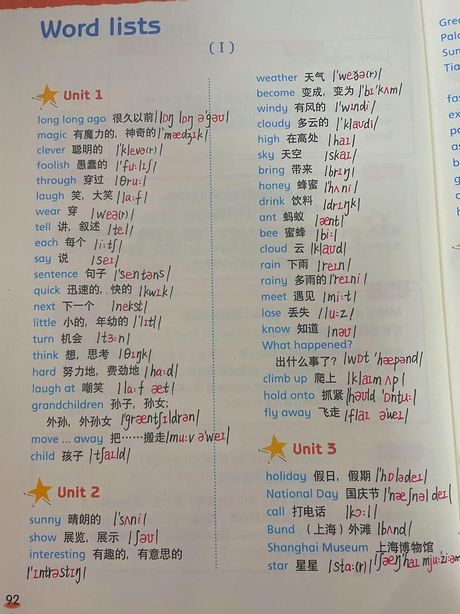 Word lists
( I )
Unit 1
long long ago 很久以前 /lɒŋ lɒŋ ə'ɡəʊ/
magic 有魔力的，神奇的 /'mædʒɪk/
clever 聪明的 /'klevə(r)/
foolish 愚蠢的 /'fuːlɪʃ/
through 穿过 /θruː/
laugh 笑，大笑 /lɑːf/
wear 穿 /weə(r)/
tell 讲，叙述 /tel/
each 每个 /iːtʃ/
say 说 /seɪ/
sentence 句子 /'sentəns/
quick 迅速的，快的 /kwɪk/
next 下一个 /nekst/
little 小的，年幼的 /'lɪtl/
turn 机会 /tɜːn/
think 想，思考 /θɪŋk/
hard 努力地，费劲地 /hɑːd/
laugh at 嘲笑 /lɑːf æt/
grandchildren 孙子，孙女；
外孙，外孙女 /'ɡræntʃɪldrən/
move ... away 把……搬走 /muːv ə'weɪ/
child 孩子 /tʃaɪld/
Unit 2
sunny 晴朗的 /'sʌni/
show 展览，展示 /ʃəʊ/
interesting 有趣的，有意思的
/'ɪntrəstɪŋ/
92
weather 天气 /'weðə(r)/
become 变成，变为 /bɪ'kʌm/
windy 有风的 /'wɪndi/
cloudy 多云的 /'klaʊdi/
high 在高处 /haɪ/
sky 天空 /skaɪ/
bring 带来 /brɪŋ/
honey 蜂蜜 /'hʌni/
drink 饮料 /drɪŋk/
ant 蚂蚁 /ænt/
bee 蜜蜂 /biː/
cloud 云 /klaʊd/
rain 下雨 /reɪn/
rainy 多雨的 /'reɪni/
meet 遇见 /miːt/
lose 丢失 /luːz/
know 知道 /nəʊ/
What happened?
出什么事了？ /wɒt 'hæpənd/
climb up 爬上 /klaɪm ʌp/
hold onto 抓紧 /həʊld 'ɒntuː/
fly away 飞走 /flaɪ əweɪ/
Unit 3
holiday 假日，假期 /'hɒlədeɪ/
National Day 国庆节 /'næʃnəl deɪ/
call 打电话 /kɔːl/
Bund （上海）外滩 /bʌnd/
Shanghai Museum 上海博物馆
star 星星 /stɑː(r)/ /ʃæŋ'haɪ mjuːziːəm